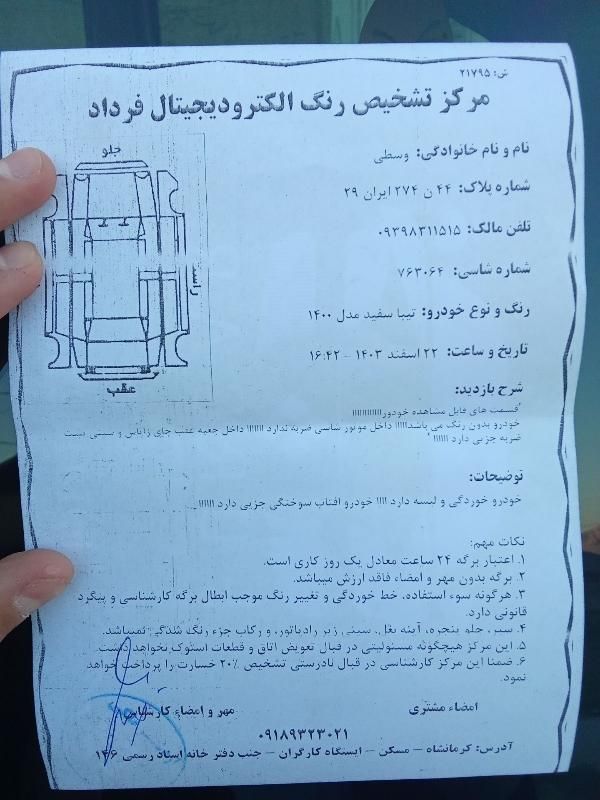 ش: ۲۱۷۹۵
مرکز تشخیص رنگ الکترودیجیتال فرداد
جلو
راست
عقب
نام و نام خانوادگی: وسطی
شماره پلاک: ۴۴ ن ۲۷۴ ایران ۲۹
تلفن مالک: ۰۹۳۹۸۳۱۱۵۱۵
شماره شاسی: ۷۶۳۰۶۴
رنگ و نوع خودرو: تیبا سفید مدل ۱۴۰۰
تاریخ و ساعت: ۲۲ اسفند ۱۴۰۳ - ۱۶:۴۲
شرح بازدید:
قسمت های قابل مشاهده خودور
خودرو بدون رنگ می باشد داخل موتور شاسی ضربه ندارد داخل جعبه عقب جای زاپاس و سینی پشت
ضربه جزیی دارد
توضیحات:
خودرو خوردگی و لیسه دارد خودرو افتاب سوختگی جزیی دارد
نکات مهم:
۱. اعتبار برگه ۲۴ ساعت معادل یک روز کاری است.
۲. برگه بدون مهر و امضاء فاقد ارزش میباشد.
۳. هرگونه سوء استفاده، خط خوردگی و تغییر رنگ موجب ابطال برگه کارشناسی و پیگرد
قانونی دارد.
۴. سپر، جلو پنجره، آینه بغل، سینی زیر رادیاتور، و رکاب جزء رنگ شدگی نمیباشد.
۵. این مرکز هیچگونه مسئولیتی در قبال تعویض اتاق و قطعات استوک نخواهد داشت.
۶. ضمنا این مرکز کارشناسی در قبال نادرستی تشخیص ۲۰٪ خسارت را پرداخت خواهد
نمود.
امضاء مشتری
مهر و امضاء کارشناس
۰۹۱۸۹۳۲۳۰۲۱
آدرس: کرمانشاه - مسکن - ایستگاه کارگران - جنب دفتر خانه اسناد رسمی ۱۴۶